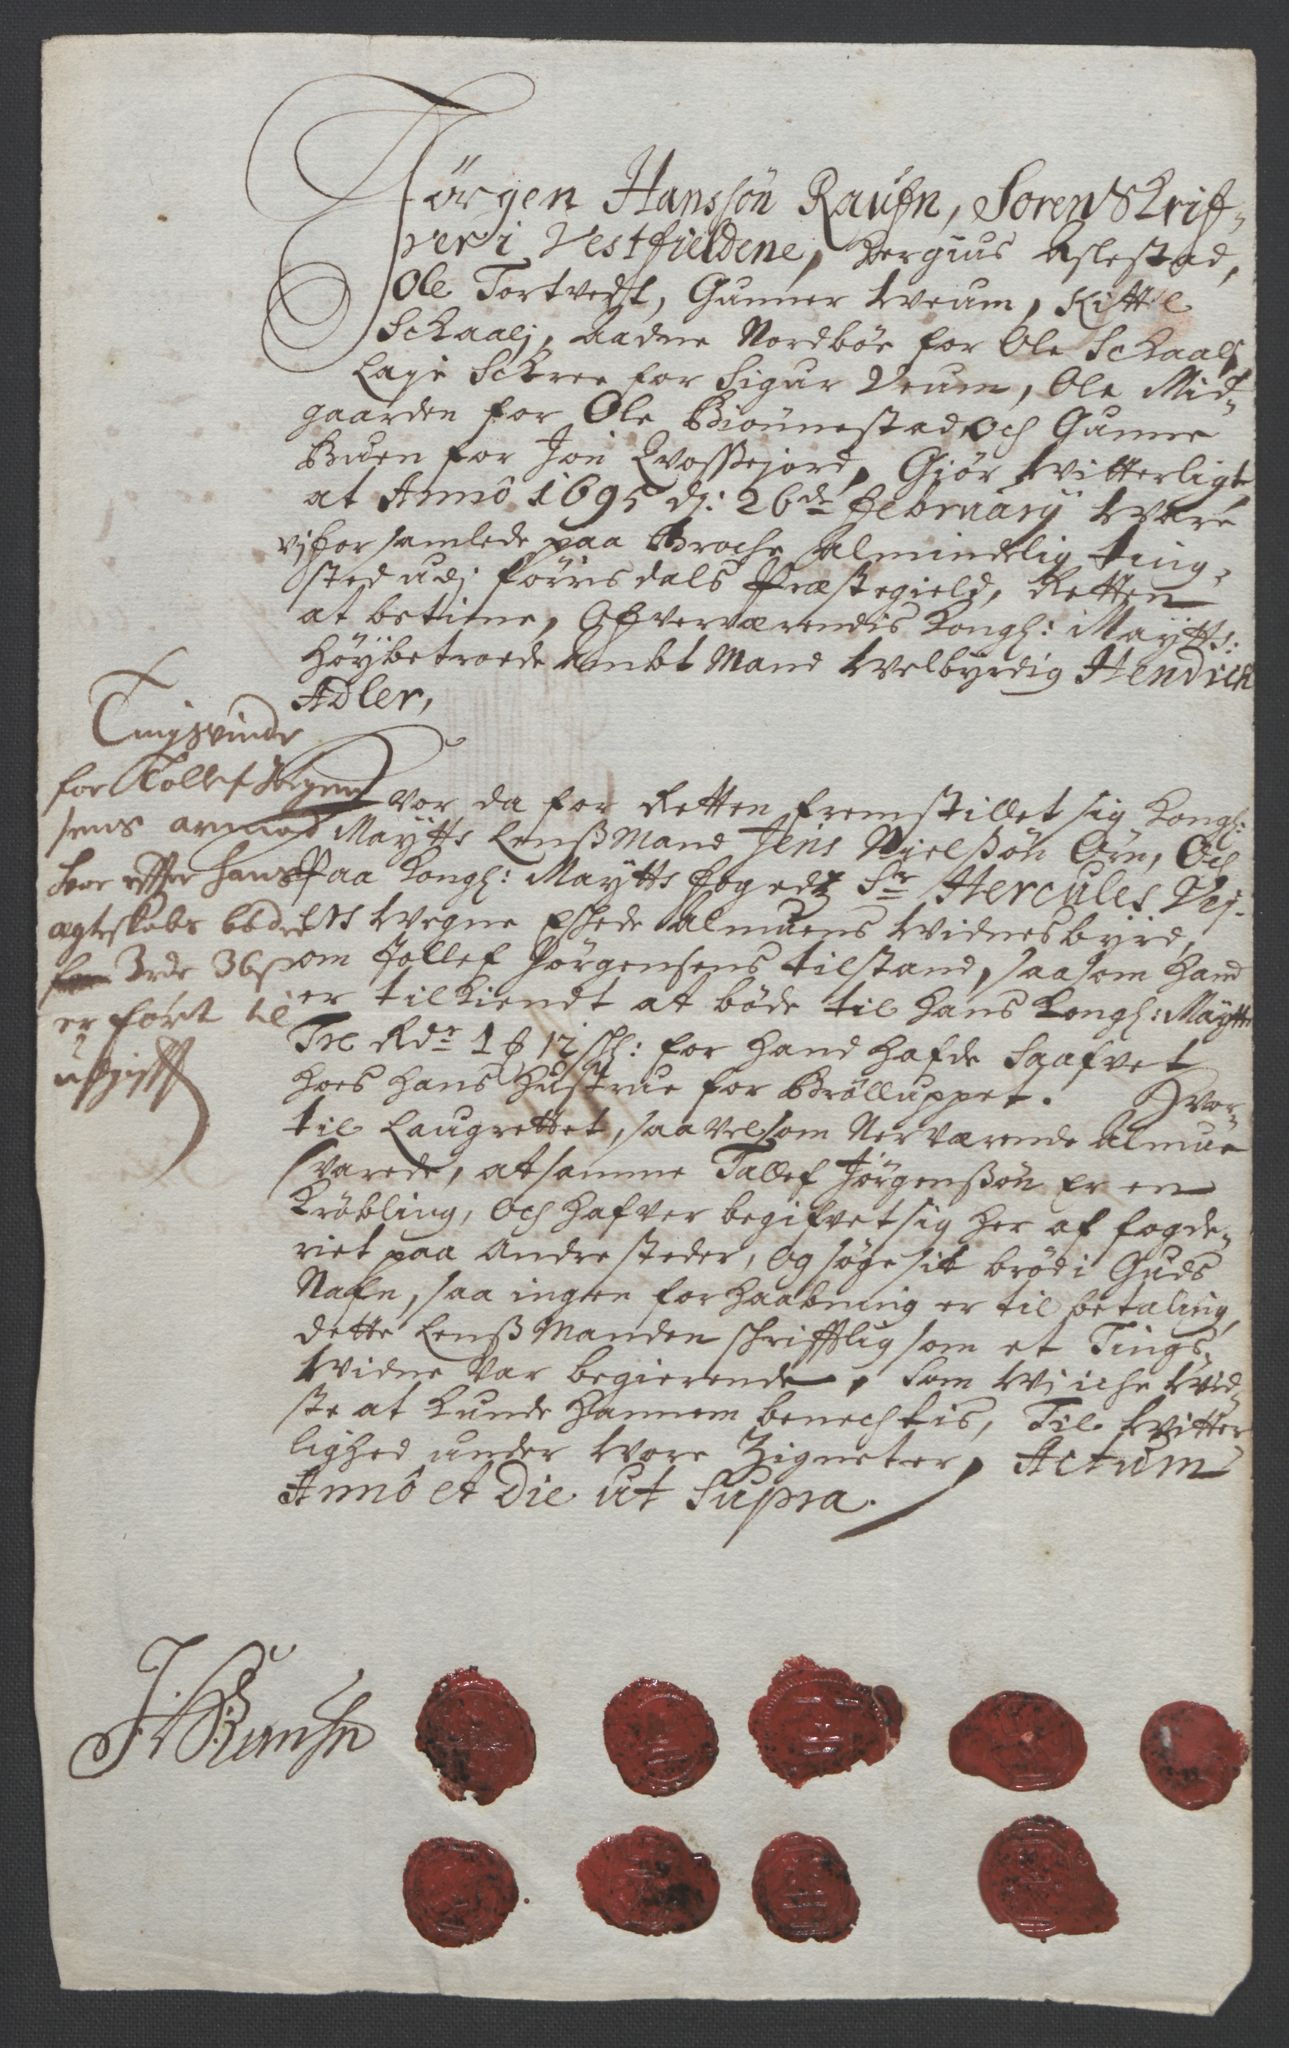 Jørgen Hanssøn Raufn, Sorenskrif-
ver i Vestfieldene, Bergius Aslestad,
Ole Tortvedt, Gunner Weum, Kittel
Schaali, Aadne Nordbøe for Ole Schaali
Lage Schree for Sigur Veum, Ole Mid-
gaarden for Ole Biønnestad och Gunne
Buen for Jon Qvossejord, Giør witterligt
at Annô 1695 dj: 26de February ware
vj forsamlede paa Broche almindelig ting-
sted udj Førrisdals Præstegield, Retten
at betiene, Ofververværendis Kongl: Maytts:
Høybetroede Ambt Mand Welbyrdig Hendrich
Adler,
Tingsvinde
for Tollef Jørgen
sens armod
hvor effter hans
ægteskabs bøder
3 rdr 36 s
er ført til
udgifft
Vor da for Retten fremstillet sig Kongl:
Maytts Lenssmand Jens Nielssøn Ørn, Och
Paa Kongl: Maytts fogedz Sr Hercules Vej-
ers wegne eshede Almuens widnesbyrd,
om Tollef Jørgensens tilstand, saasom hand
er tilkiendt at bøde til Hans Kongl: Maytts
Tre Rdr 1 ß 12 sk: for hand hafde saafvet
hoes hans Hustrue for Brølluppet. Hvor-
til Laugrettet, saavelsom Nerværende Almue
svarede, at samme Tallef Jørgenssøn er en
Krøbling, och hafver begifvet sig her af fogde-
riet paa andre steder, og søge sit brød i Guds
Nafn, saa ingen forhaabning er til betaling,
dette Lenssmanden schrifftlig som et Tings-
widne var begierende, som wi iche wid-
ste at kunde hannem benechtis, Til witter
lighed under wore Zigneter, Actum
Annô et Die ut Supra.
JHRaufn